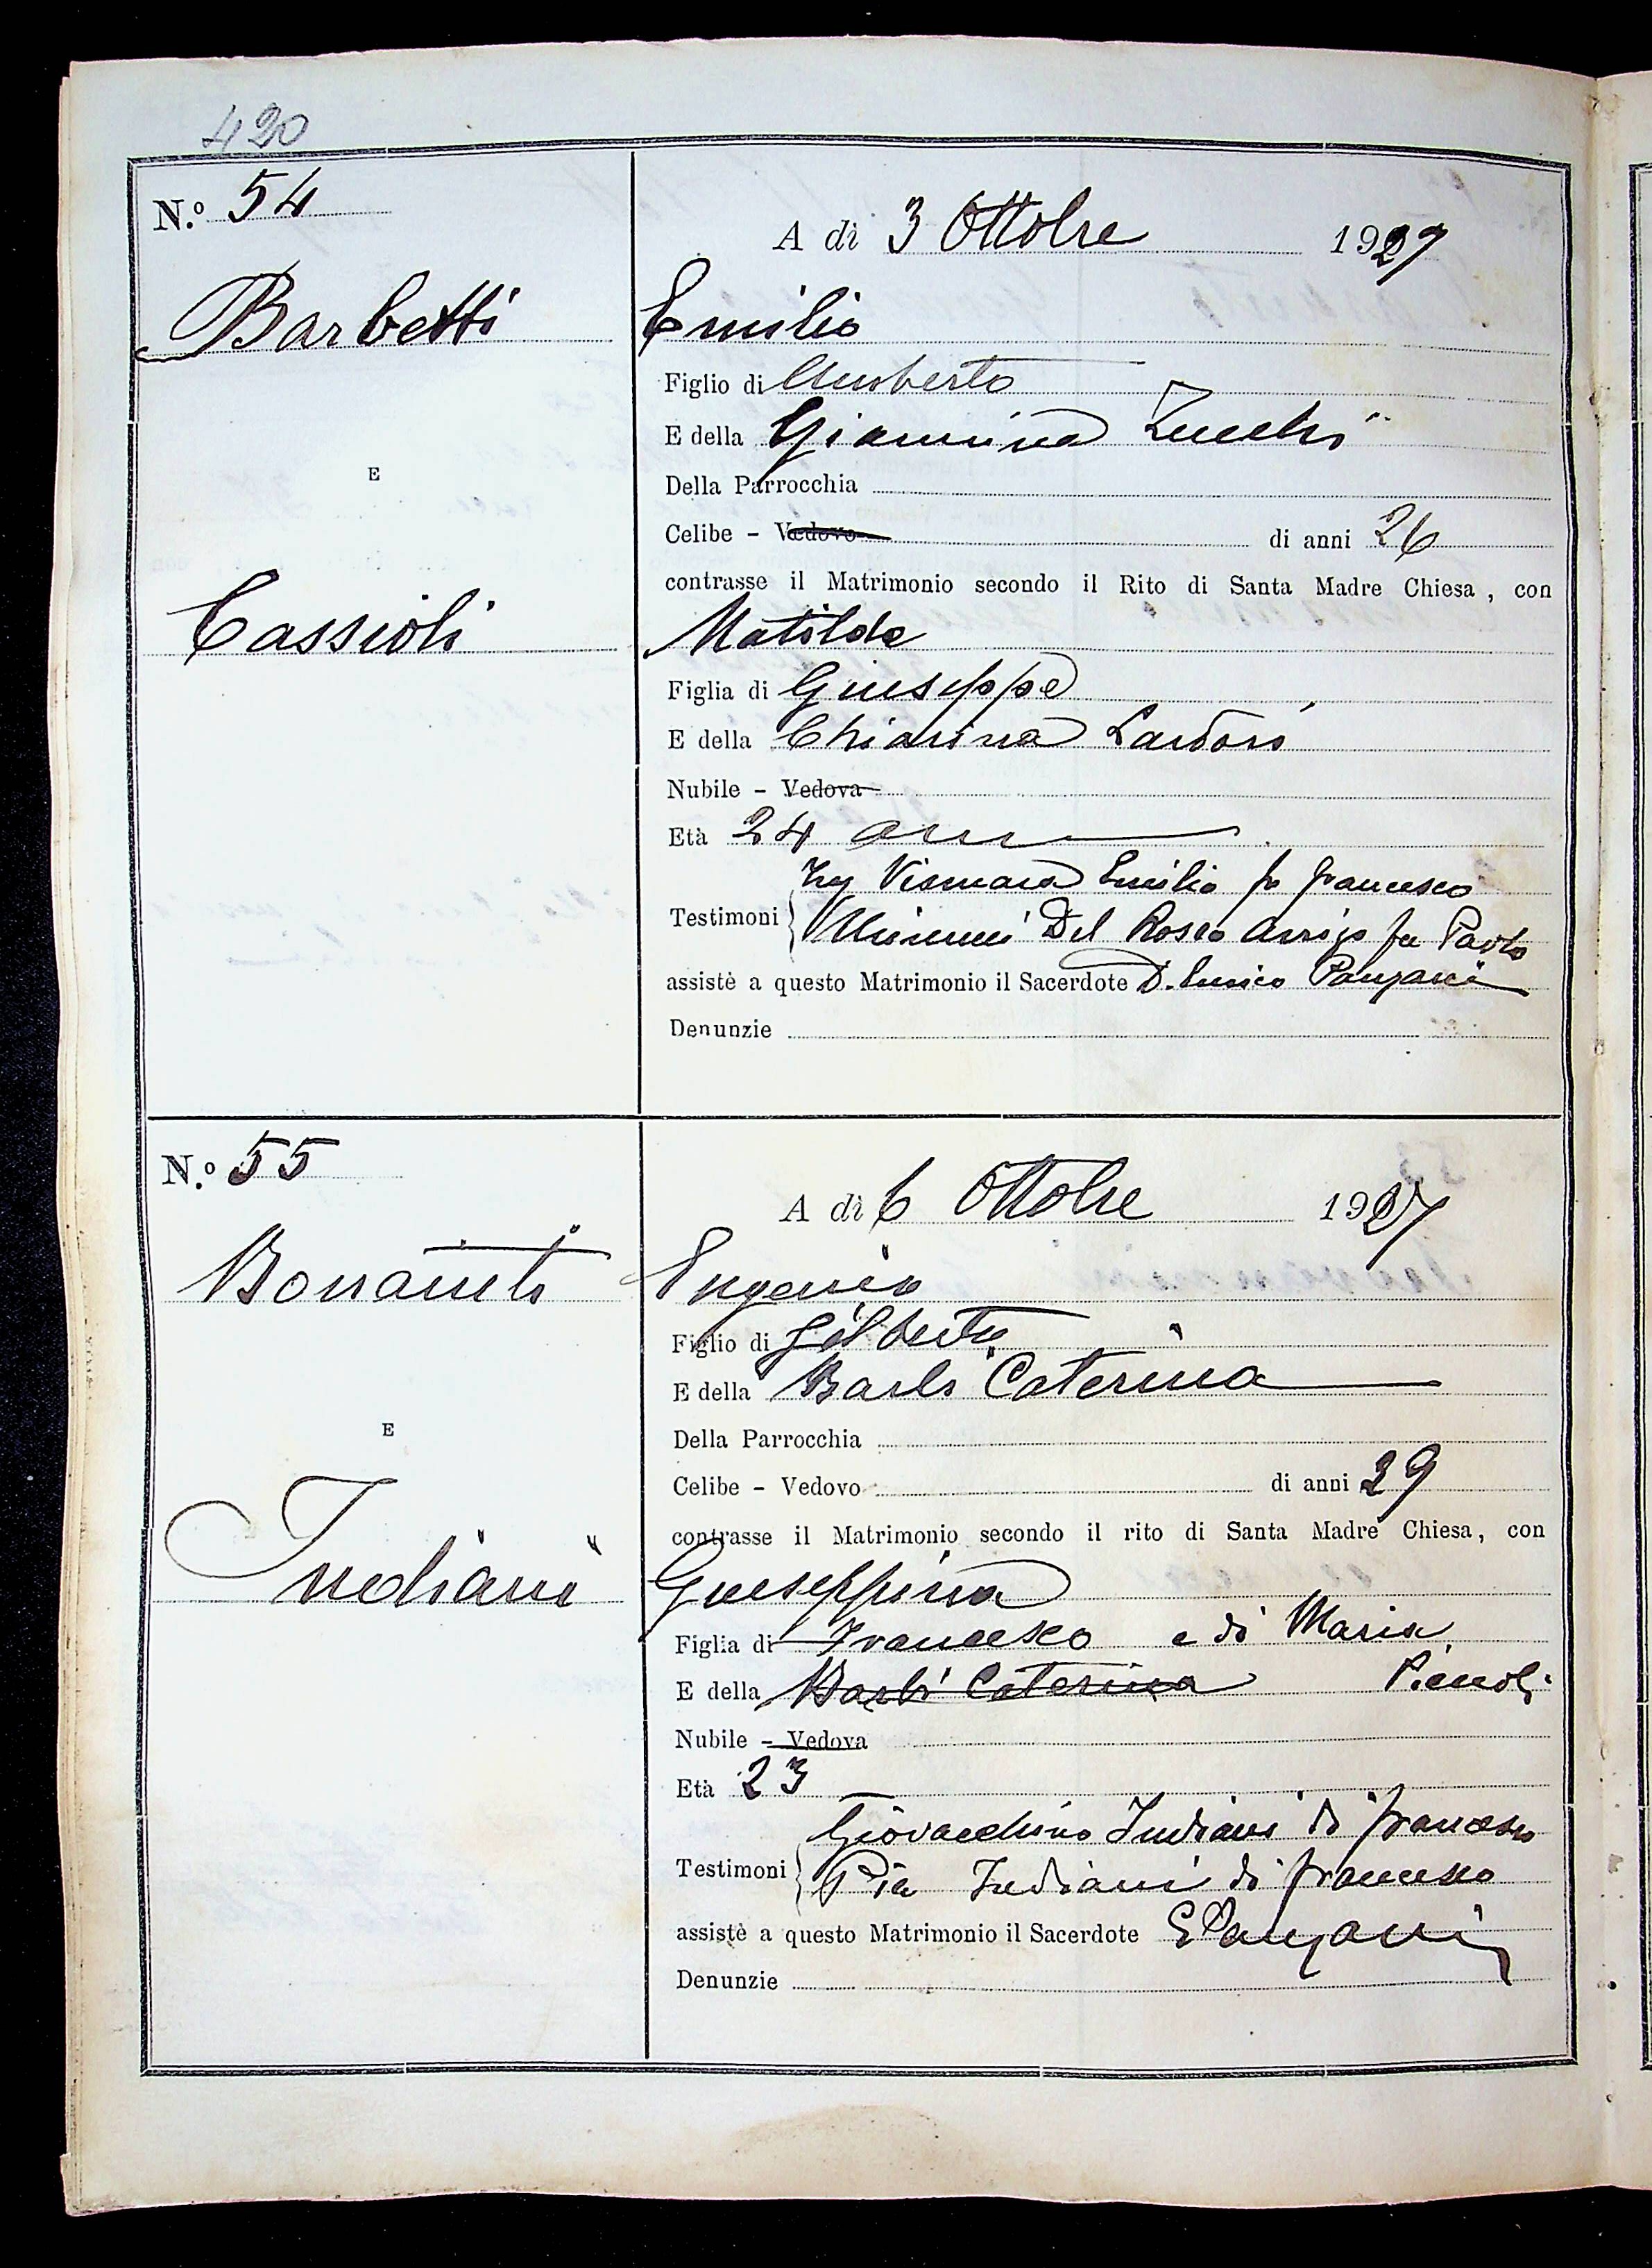 420
N.º 54
A dì 3 Ottobre 1927
Barbetti
Emilio
Figlio di Umberto
E della Giannina Zucchi
E
Della Parrocchia
Celibe - Vedovo di anni 26
contrasse il Matrimonio secondo il Rito di Santa Madre Chiesa, con
Cassioli
Matilde
Figlia di Giuseppe
E della Chiarina Landori
Nubile - Vedova
Età 24 anni
Ing Vismara Emilio fu Francesco
Testimoni
Del Rosso Arrigo fu Paolo
assistè a questo Matrimonio il Sacerdote D. Enrico Panzani
Denunzie
N.º 55
A dì 6 Ottobre 1927
Bonaiuti
Eugenio
Figlio di Gilberto
E della Barbi Caterina
E
Della Parrocchia
Celibe - Vedovo di anni 29
contrasse il Matrimonio secondo il rito di Santa Madre Chiesa, con
Indiani
Giuseppina
Figlia di Francesco e di Maria
E della Barbi Caterina
Nubile - Vedova
Età 23
Giovacchino Indiani di Francesco
Testimoni
Pia Indiani di Francesco
assistè a questo Matrimonio il Sacerdote E Panzani
Denunzie